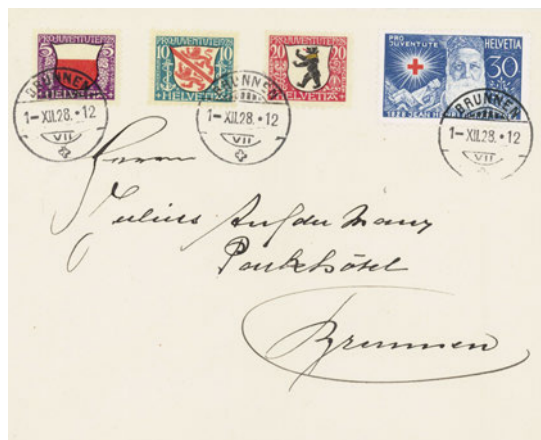 PRO JUVENTUTE
5 5
HELVETIA
PRO JUVENTUTE
10 10
HELVETIA
PRO JUVENTUTE
20 20
HELVETIA
PRO
JUVENTUTE
HELVETIA
30
1928 JEAN H
BRUNNEN
1-XII.28.•12
VII
BRUNNEN
1-XII.28.•12
VII
BRUNNEN
1-XII.28.•12
VII
Herrn
Julius Auf der Maur
Parkhôtel
Brunnen